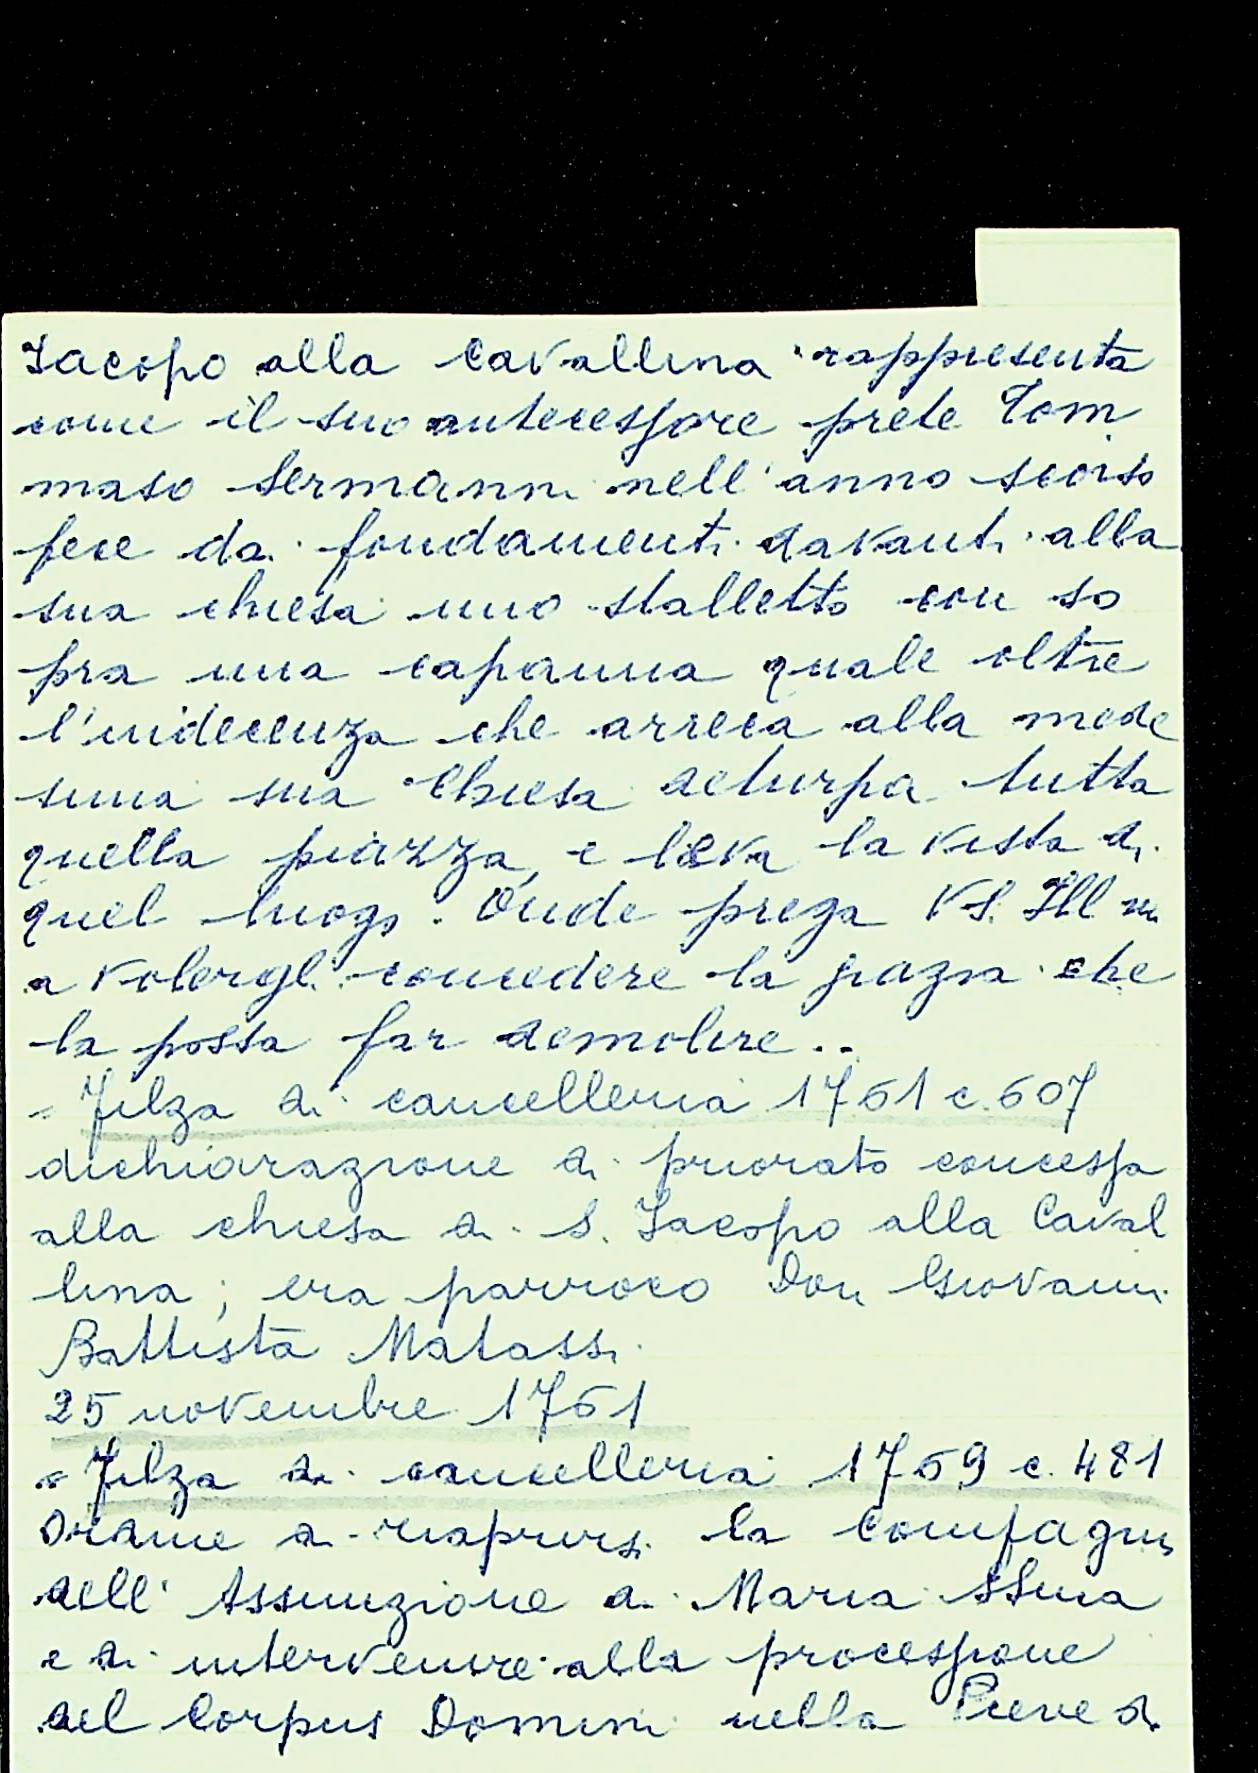 Iacopo alla Cavallina rappresenta
come il suo antecessore prete Tom
maso Sermanni nell'anno scorso
fece da fondamenti davanti alla
sua chiesa uno stalletto con so
pra una capanna quale oltre
l'indecenza che arreca alla mede
sima sua Chiesa deturpa tutta
quella piazza, e lieva la vista di
quel luogo. Onde prega VS. Ill m
a volergli concedere la grazia che
la possa far demolire..
- Filza di cancelleria 1761 c. 607
dichiarazione di priorato concessa
alla chiesa di S. Iacopo alla Caval
lina; era parroco Don Giovanni
Battista Matassi.
25 novembre 1761
- Filza di cancelleria 1769 c. 481
Ordine di riaprirsi la Compagni
dell'Assunzione di Maria SSma
e di intervenire alla processione
del Corpus Domini nella Pieve di